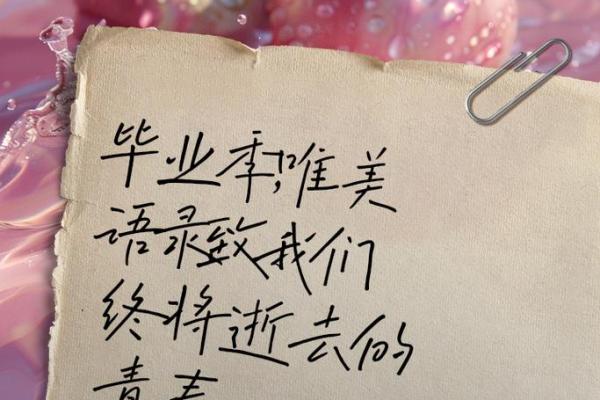 毕业季,唯美
语录致我们
终将逝去的
青